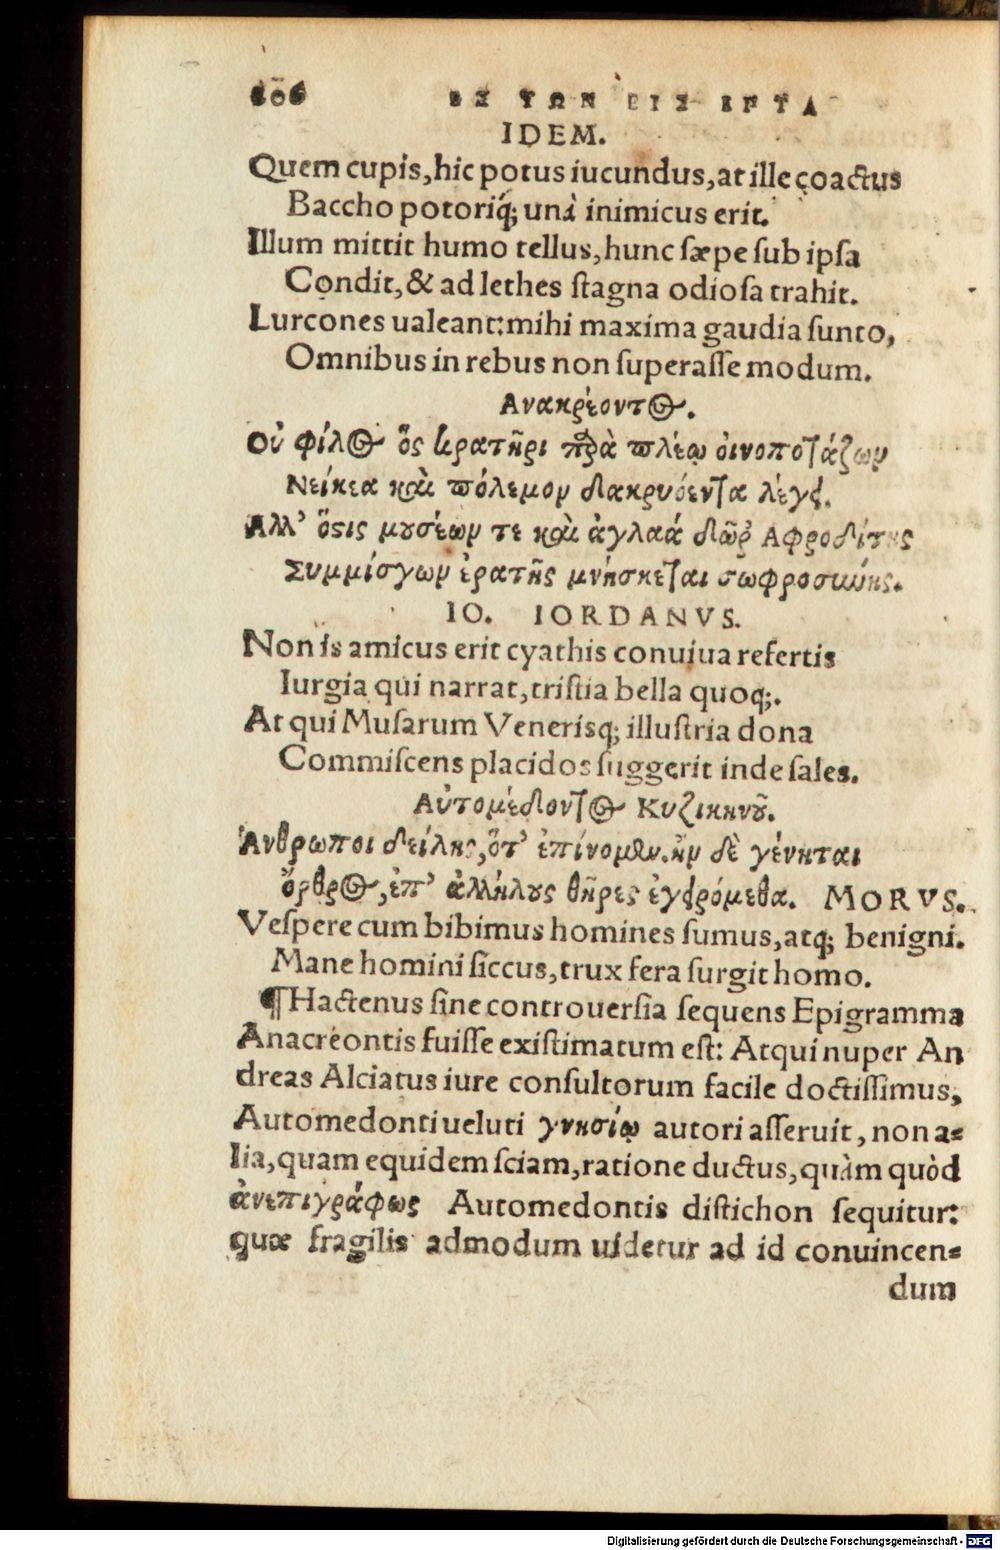 ΕΞ ΤΩΝ ΕΙΣ ΕΡΤΑ
IDEM.
Quem cupis, hic potus iucundus, at ille coactus
Baccho potoriq́; unà inimicus erit.
Illum mittit humo tellus, hunc sæpe sub ipsa
Condit, & ad lethes stagna odiosa trahit.
Lurcones ualeant: mihi maxima gaudia sunto,
Omnibus in rebus non superasse modum.
Ανακρέοντος.
Οὐ φίλος ὃς κρατῆρι παρὰ πλέῳ οἰνοποτάζων
Νείκεα καὶ πόλεμον δακρυόεντα λέγει.
Αλλ' ὅστις μουσέων τε καὶ ἀγλαά δῶρ Αφροδίτης
Συμμίσγων ἐρατῆς μνήσκεται σωφροσύνης.
IO. IORDANVS.
Non is amicus erit cyathis conuiua refertis
Iurgia qui narrat, tristia bella quoq;.
At qui Musarum Venerisq; illustria dona
Commiscens placidos suggerit inde sales.
Αὐτομέδοντος Κυζικηνοῦ.
Ἄνθρωποι δείλης, ὅτ' ἐπίνομεν. ἢν δὲ γένηται
ὄρθρος, ἐπ' ἀλλήλους θῆρες ἐγειρόμεθα. MORVS.
Vespere cum bibimus homines sumus, atq; benigni.
Mane homini siccus, trux fera surgit homo.
¶Hactenus sine controuersia sequens Epigramma
Anacreontis fuisse existimatum est: Atqui nuper An
dreas Alciatus iure consultorum facile doctissimus,
Automedonti ueluti γνησίῳ autori asseruit, non a=
lia, quam equidem sciam, ratione ductus, quàm quòd
ἀνεπιγράφως Automedontis distichon sequitur:
quæ fragilis admodum uidetur ad id conuincen=
dum
Digitalisierung gefördert durch die Deutsche Forschungsgemeinschaft - DFG